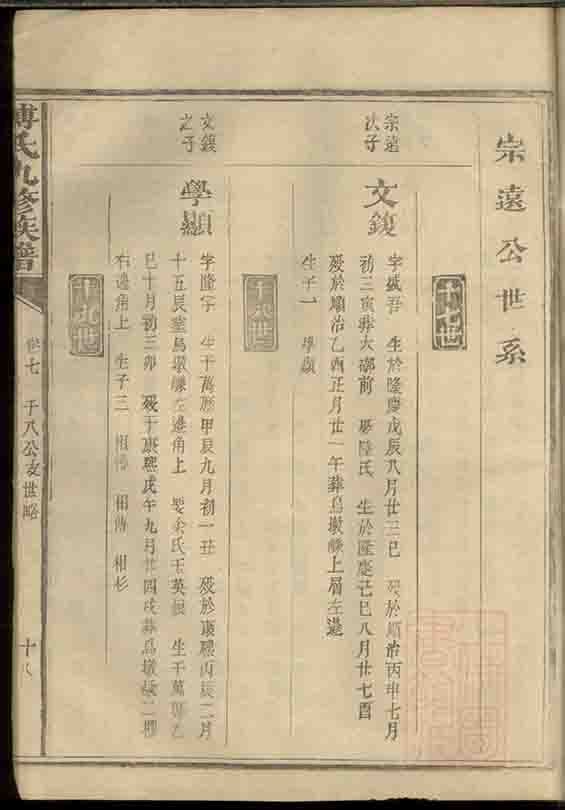 宗遠公世系
十七世
宗遠
次子
文鍑
字盛吾 生於隆慶戊辰八月廿三巳 歿於順治丙申七月
初三寅葬大廍前 娶陸氏 生於隆慶己巳八月廿七酉
歿於順治乙酉正月廿一午葬烏墩磜上層左邊
生子一 學顯
十八世
文鍑
之子
學顯
字隆宇 生于萬曆甲辰九月初一丑 歿於康熙丙辰二月
十五辰葬烏墩磜左邊角上 娶余氏玉英娘 生于萬曆乙
巳十月初三卯 歿于康熙戊午九月廿四戌葬烏墩磜二層
右邊角上 生子三 相 相傳 相杉
十九世
傅氏九修族譜
卷七 千八公友世略
十八